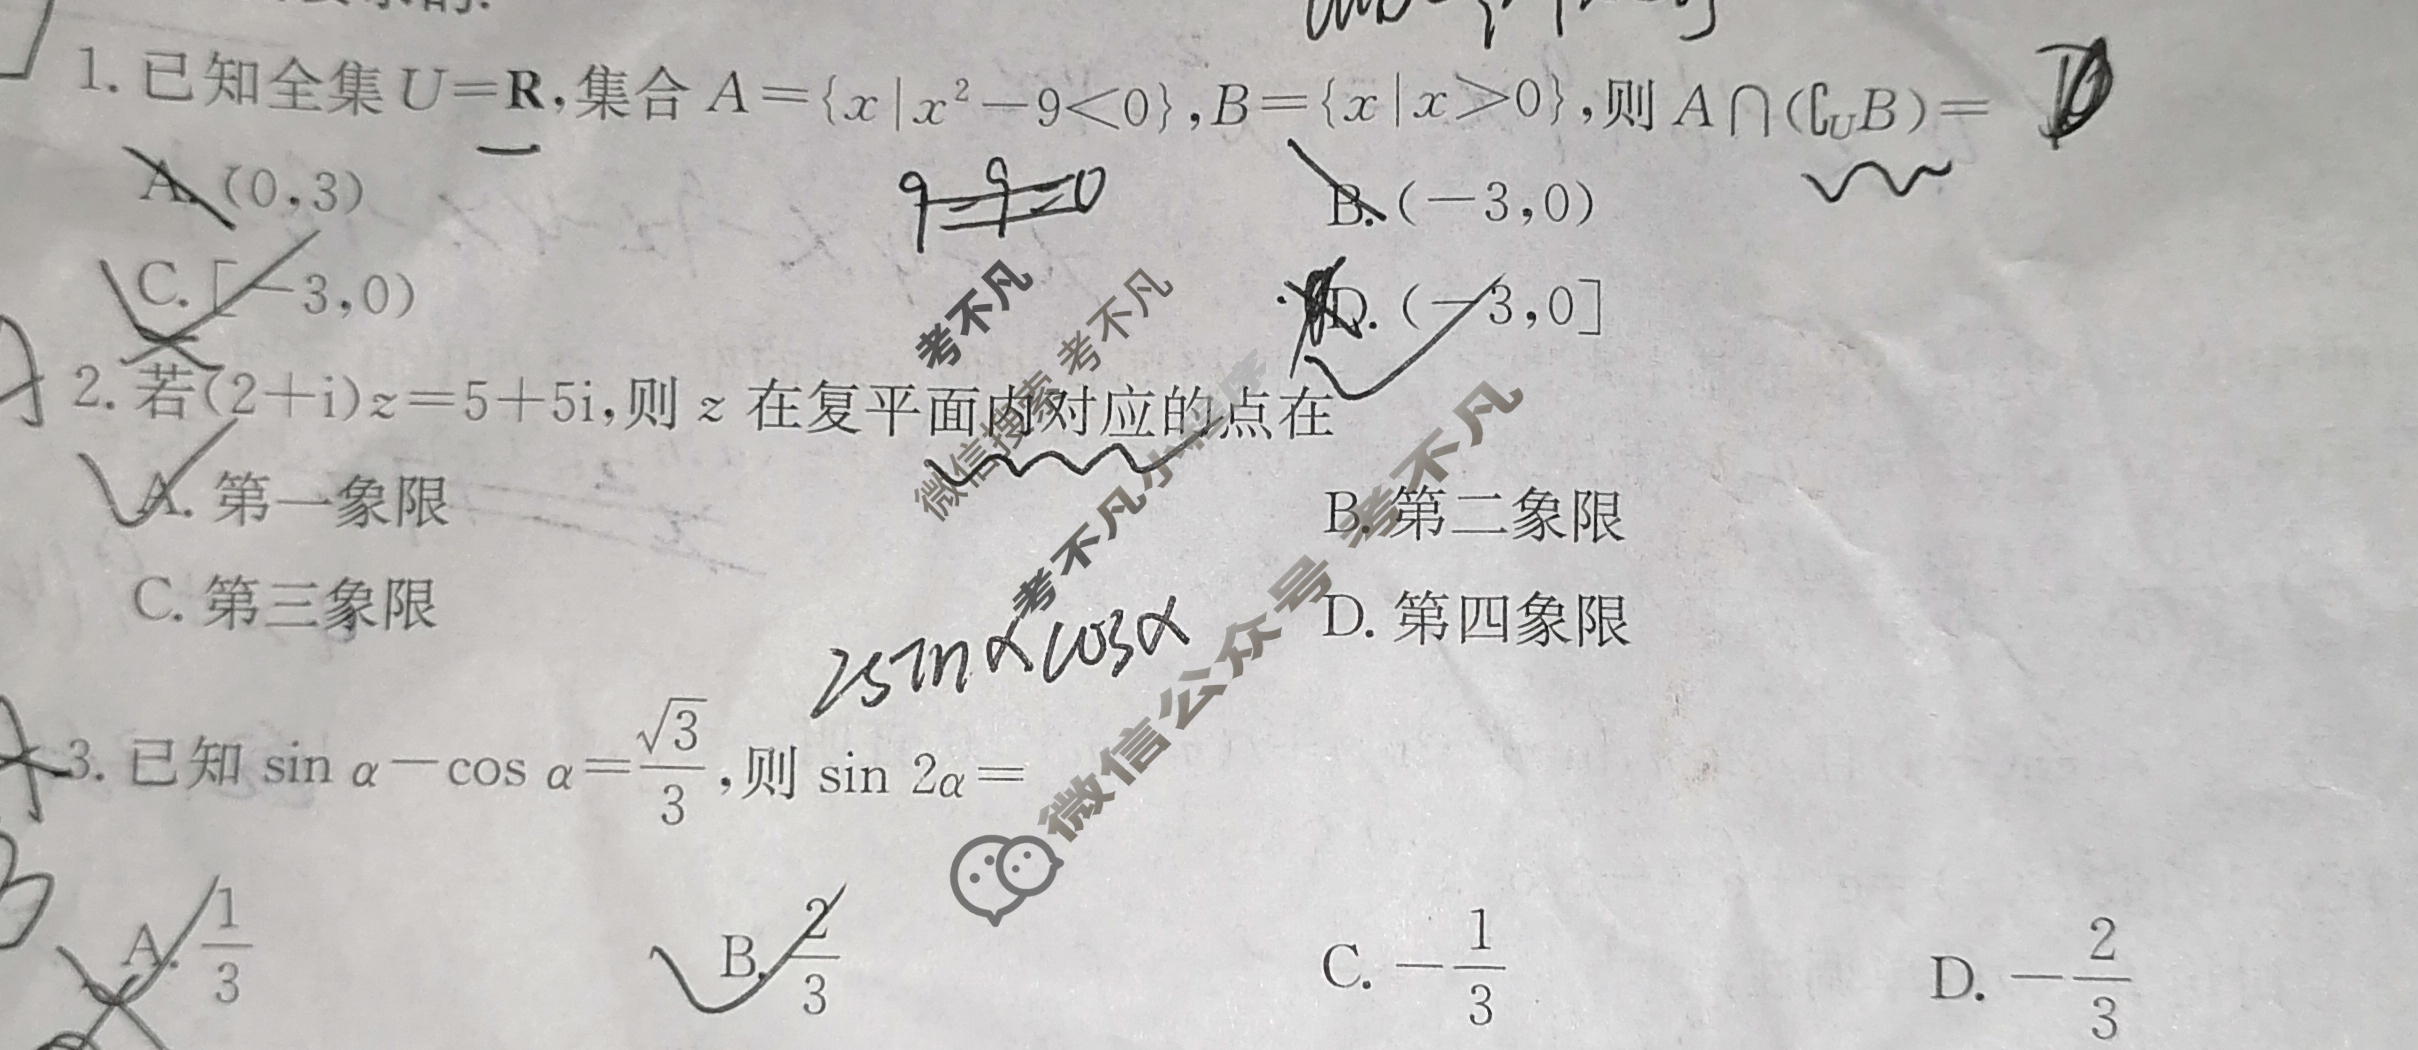 1. 已知全集 U=R,集合 A={x|x²-9<0},B={x|x>0},则 A∩(∁UB)= D
A. (0,3)
B. (-3,0)
9-9=0
C. [-3,0)
D. (-3,0]
2. 若(2+i)z=5+5i,则 z 在复平面内对应的点在
A. 第一象限
B. 第二象限
C. 第三象限
D. 第四象限
2sinαcosα
3. 已知 sin α-cos α=√3/3,则 sin 2α=
A. 1/3
B. 2/3
C. -1/3
D. -2/3
考不凡
微信搜索 考不凡
考不凡小程序
微信公众号 考不凡